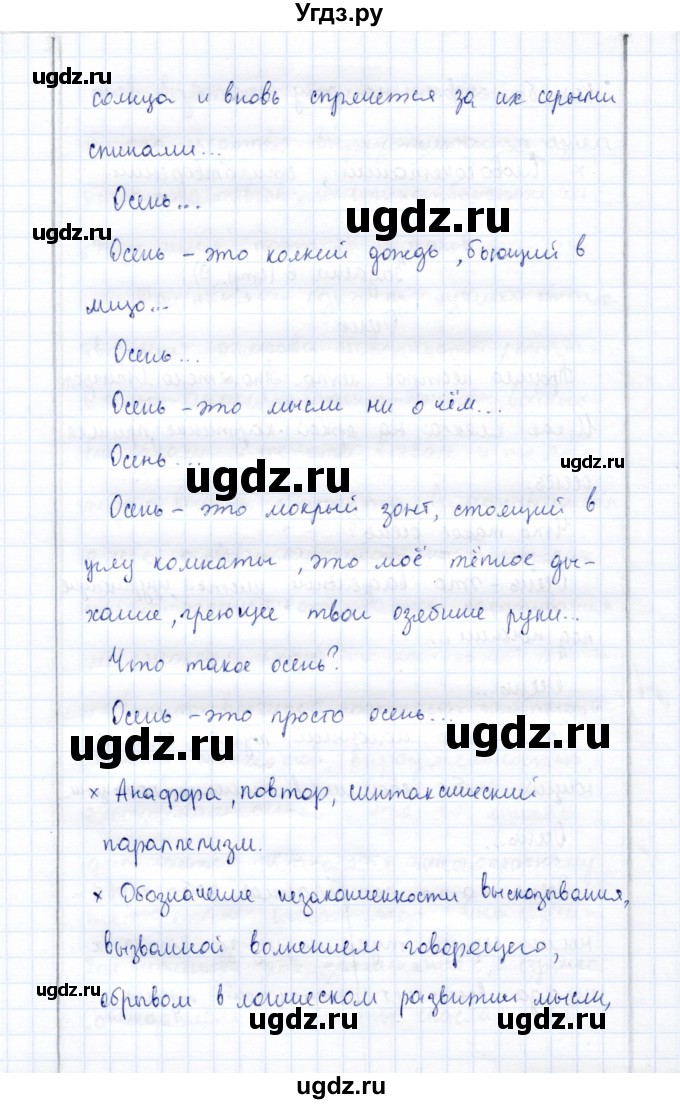 Угдз.ру
ugdz.ru
солнца и вновь спрячется за их серыми
спинами...
Осень...
ugdz.ru
ugdz.ru
Осень – это колкий дождь, бьющий в
лицо...
Осень...
Осень – это мысли ни о чём...
Осень...
ugdz.ru
ugdz.ru
Осень – это мокрый зонт, стоящий в
углу комнаты, это моё тёплое ды-
хание, греющее твои озябшие руки...
Что такое осень?
Осень – это просто осень...
ugdz.ru
ugdz.ru
× Анафора, повтор, синтаксический
параллелизм.
× Обозначение незаконченности высказывания,
вызванной волнением говорящего,
обрывом в логическом развитии мысли,
ugdz.ru
ugdz.ru
ugdz.ru
ugdz.ru